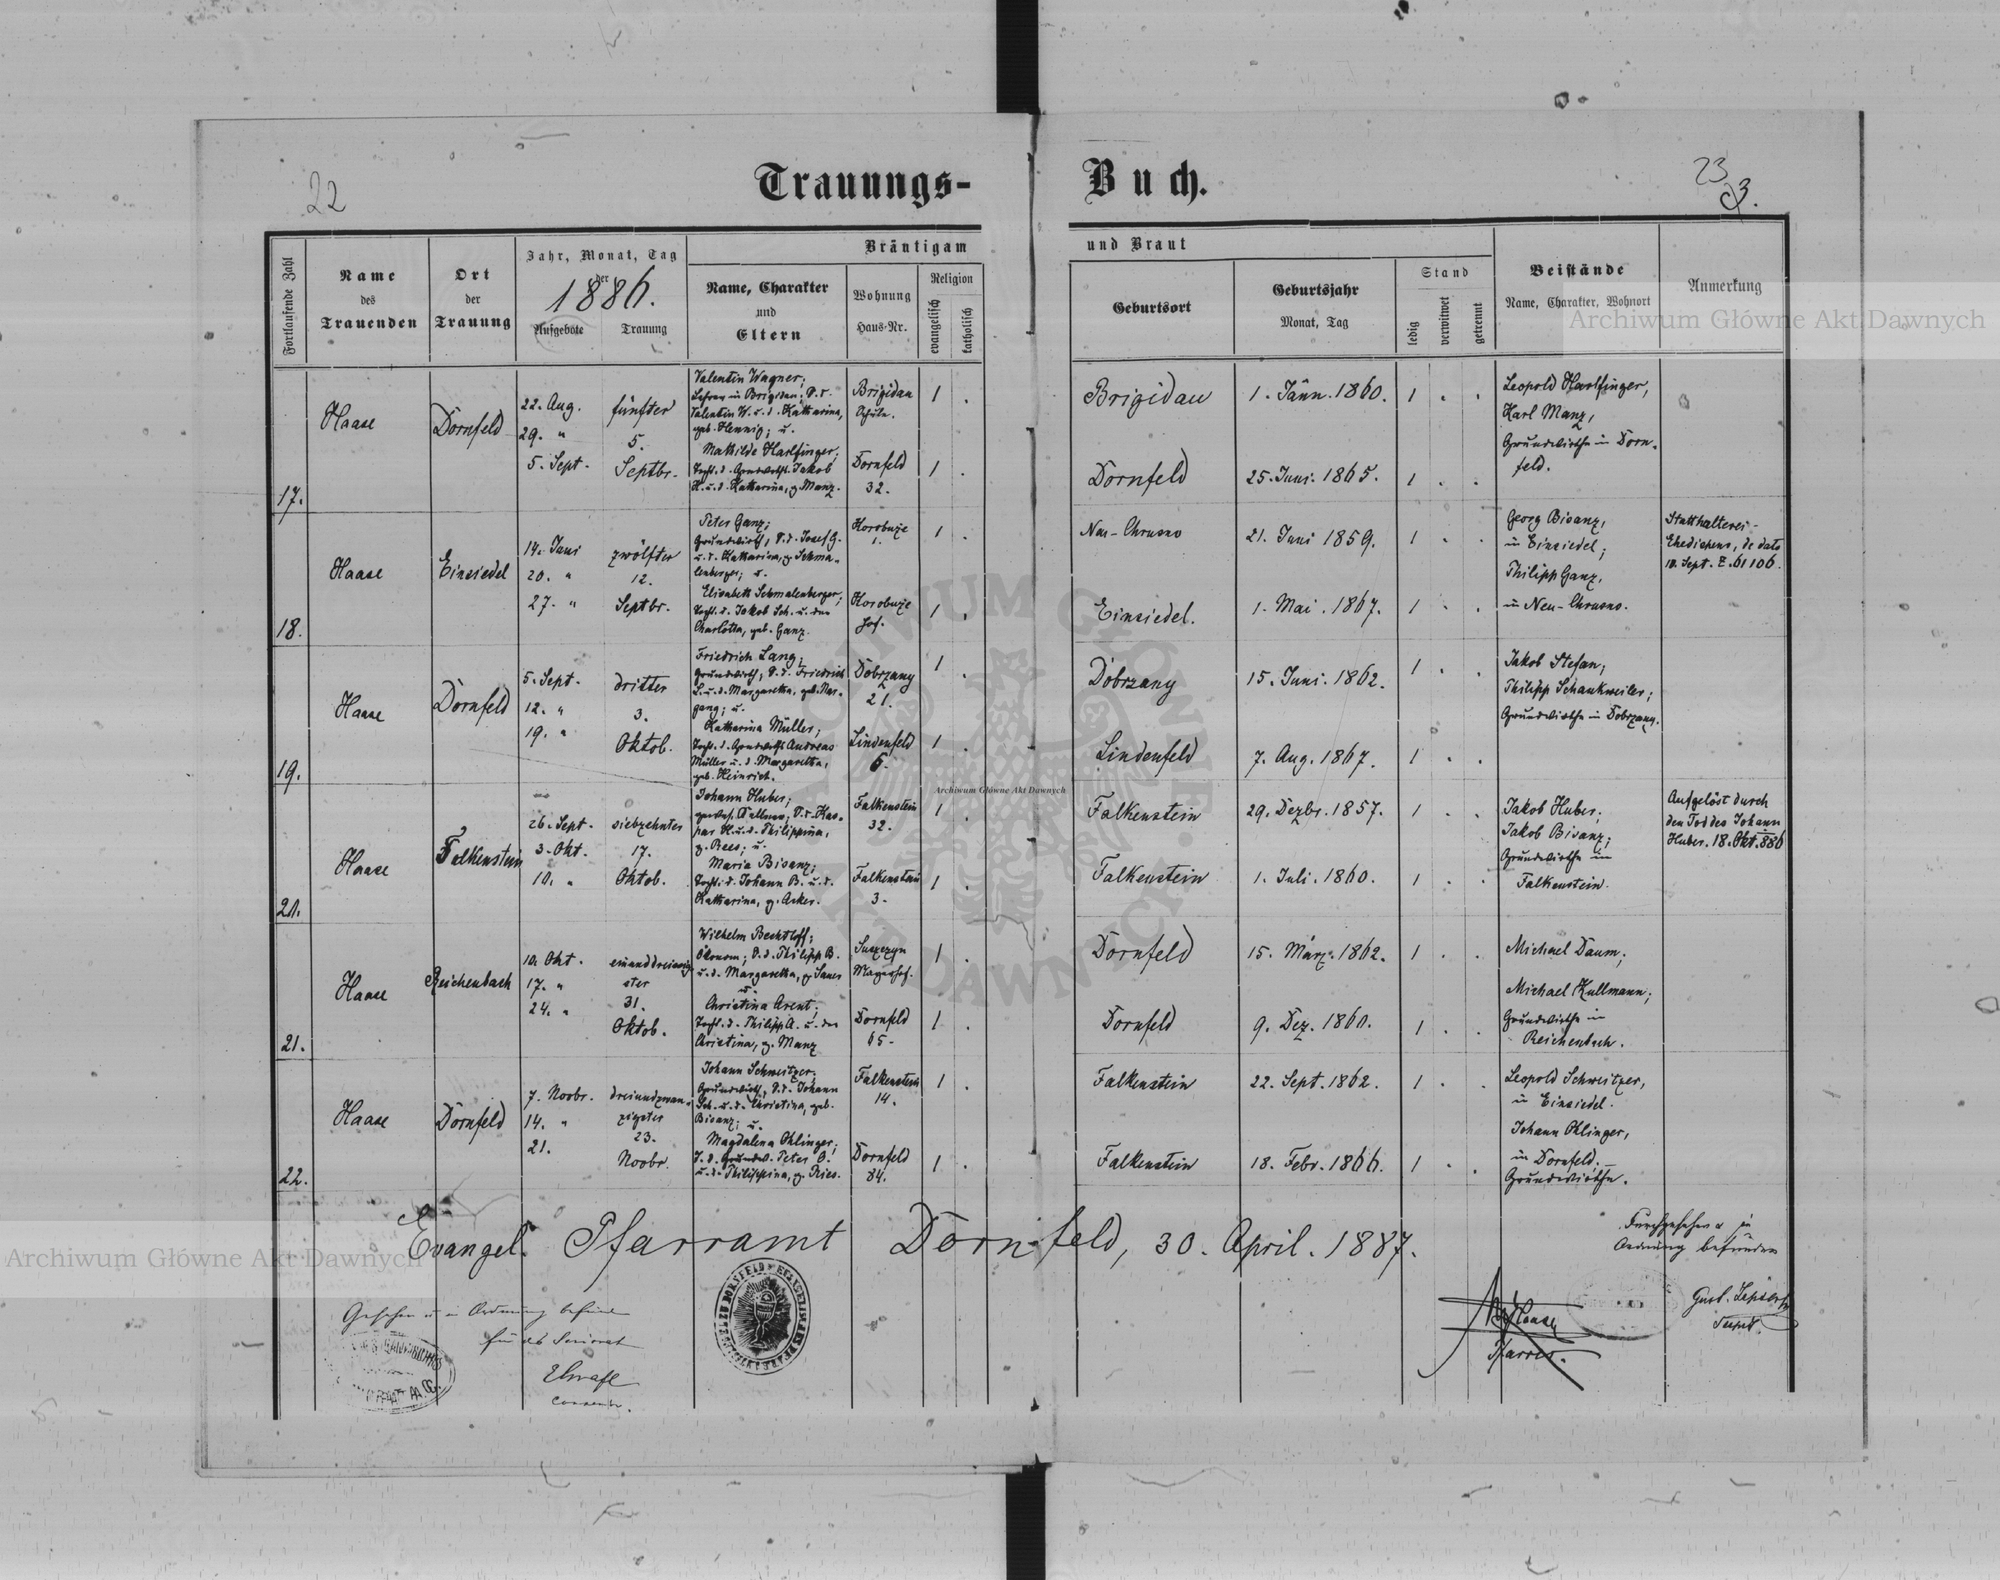 22
Trauungs-
Buch.
23
23.
Fortlaufende Zahl
Name
des
Trauenden
Ort
der
Trauung
Jahr, Monat, Tag
der
1886.
Aufgebote
Trauung
Bräutigam
Name, Charakter
und
Eltern
Wohnung
Haus-Nr.
Religion
evangelisch
katholisch
und Braut
Geburtsort
Geburtsjahr
Monat, Tag
Stand
ledig
verwitwet
getrennt
Beistände
Name, Charakter, Wohnort
Anmerkung
17.
Haase
Dornfeld
22. Aug.
29. "
5. Sept.
fünfter
5.
Septbr.
Valentin Wagner;
Lehrer in Brigidau; S. d.
Valentin W. u. d. Katharina,
geb. Hennig; u.
Mathilde Harlfinger,
Tocht. d. Grundwirth. Jakob
H. u. d. Katharina, g. Manz.
Brigidau
Schule.
Dornfeld
32.
1 .
1 .
Brigidau
Dornfeld
1. Jänn. 1860.
25. Juni. 1865.
1 . .
1 . .
Leopold Harlfinger,
Karl Manz,
Grundwirthe in Dorn-
feld.
18.
Haase
Einsiedel
14. Juni
20. "
27. "
zwölfter
12.
Septbr.
Peter Ganz;
Grundwirth, S. d. Josef G.
u. d. Katharina, g. Schma-
lenberger; u.
Elisabeth Schmalenberger;
Tocht. d. Jakob Sch. u. der
Charlotta, geb. Ganz.
Horobuze
1.
Horobuze
Hof.
1 .
1 .
Neu-Chrusno
Einsiedel.
21. Juni 1859.
1. Mai. 1867.
1 . .
1 . .
Georg Bisanz,
in Einsiedel;
Philipp Ganz,
in Neu-Chrusno.
Statthalterei-
Ehedispens, de dato
10. Sept. Z. 61106.
19.
Haase
Dornfeld
5. Sept.
12. "
19. "
dritter
3.
Oktob.
Friedrich Lang;
Grundwirth, S. d. Friedrich
L. u. d. Margaretha, geb. Mar-
gang; u.
Katharina Müller;
Tocht. d. Grundwirth Andreas
Müller u. d. Margaretha,
geb. Heinrich.
Dobrzany
21.
Lindenfeld
6.
1 .
1 .
Dobrzany
Lindenfeld
15. Juni. 1862.
7. Aug. 1867.
1 . .
1 . .
Jakob Stefan;
Philipp Schankweiler;
Grundwirthe in Dobrzany.
20.
Haase
Falkenstein
26. Sept.
3. Okt.
10. "
siebzehnter
17.
Oktob.
Johann Huber;
S. d. Kas-
par H. u. d. Philippina,
g. Rees; u.
Maria Bisanz;
Tocht. d. Johann B. u. d.
Katharina, g. Acker.
Falkenstein
32.
Falkenstein
3.
1 .
1 .
Falkenstein
Falkenstein
29. Dezbr. 1857.
1. Juli. 1860.
1 . .
1 . .
Jakob Huber;
Jakob Bisanz;
Grundwirthe in
Falkenstein.
Aufgelöst durch
den Tod des Johann
Huber. 18. Okt. 886
21.
Haase
Reichenbach
10. Okt.
17. "
24. "
einunddreissig-
ster
31.
Oktob.
Wilhelm Bechtloff;
Ökonom; S. d. Philipp B.
u. d. Margaretha, g. Sauer
u.
Christina Arent;
Tocht. d. Philipp A. u. der
Christina, g. Manz
Suszczyn
Mayerhof.
Dornfeld
65.
1 .
1 .
Dornfeld
Dornfeld
15. März. 1862.
9. Dez. 1860.
1 . .
1 . .
Michael Daum;
Michael Kullmann;
Grundwirthe in
Reichenbach.
22.
Haase
Dornfeld
7. Novbr.
14. "
21.
dreiundzwan-
zigster
23.
Novbr.
Johann Schweitzer;
Grundwirth, S. d. Johann
Sch. u. d. Christina, geb.
Bisanz; u.
Magdalena Ohlinger;
T. d. Grundw. Peter O.
u. d. Philippina, g. Ries.
Falkenstein
14.
Dornfeld
84.
1 .
1 .
Falkenstein
Falkenstein
22. Sept. 1862.
18. Febr. 1866.
1 . .
1 . .
Leopold Schweitzer,
in Einsiedel.
Johann Ohlinger,
in Dornfeld;
Grundwirthe.
Evangel. Pfarramt Dornfeld, 30. April. 1887.
Durchgesehen u. in
Ordnung befunden
Gesehen u in Ordnung befunden
für das Seniorat
Haase
Pfarrer.
Archiwum Główne Akt Dawnych
Archiwum Główne Akt Dawnych
Archiwum Główne Akt Dawnych
ARCHIWUM GŁÓWNE AKT DAWNYCH